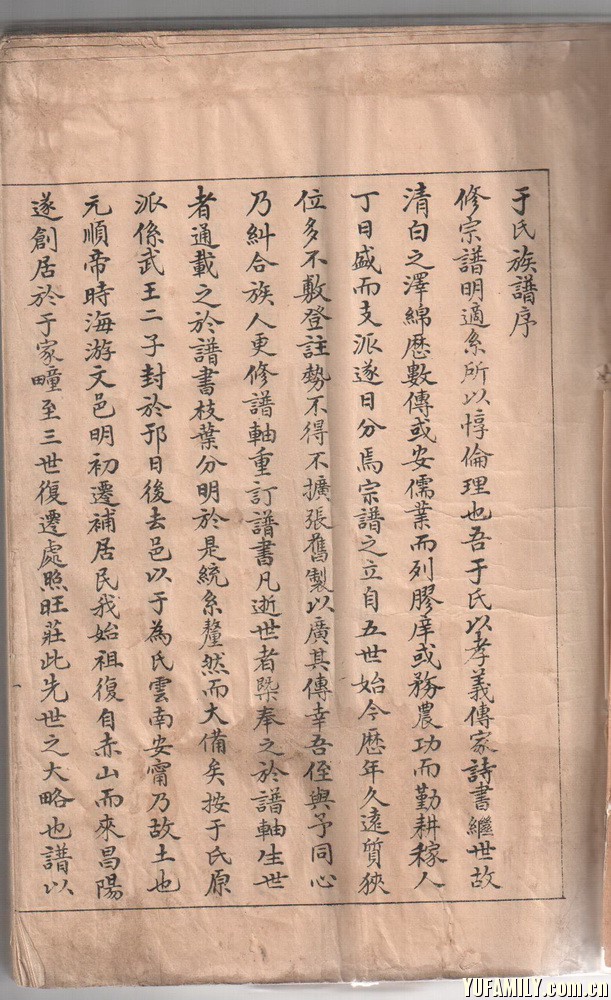 于氏族譜序
修宗譜明適系所以惇倫理也吾于氏以孝義傳家詩書繼世故
清白之澤綿歷數傳或安儒業而列膠庠或務農功而勤耕稼人
丁日盛而支派遂日分焉宗譜之立自五世始今歷年久遠質狹
位多不敷登註勢不得不擴張舊製以廣其傳幸吾侄與予同心
乃糾合族人更修譜軸重訂譜書凡逝世者槩奉之於譜軸生世
者通載之於譜書枝葉分明於是統系釐然而大備矣按于氏原
派係武王二子封於邘日後去邑以于為氏雲南安甯乃故土也
元順帝時海游文邑明初遷補居民我始祖復自赤山而來昌陽
遂創居於于家疃至三世復遷處照旺莊此先世之大略也譜以
YUFAMILY.com.cn